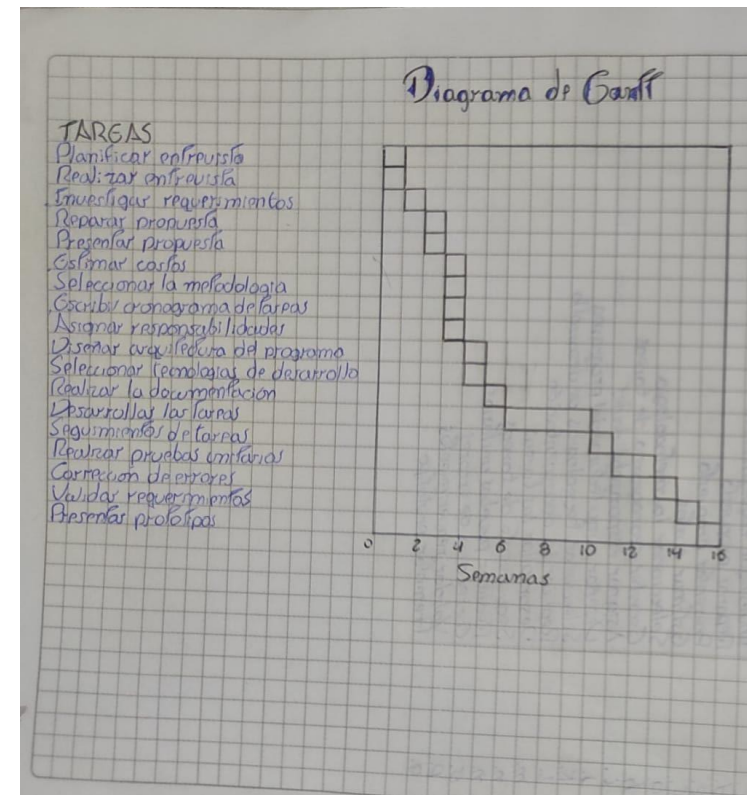 Diagrama de Gantt
TAREAS
Planificar entrevista
Realizar entrevista
Investigar requerimientos
Reparar propuesta
Presentar propuesta
Estimar costos
Seleccionar la metodologia
Escribir cronograma de tareas
Asignar responsabilidades
Diseñar arquitectura del programa
Seleccionar tecnologias de desarrollo
Realizar la documentación
Desarrollas las tareas
Seguimientos de tareas
Realizar pruebas unitarias
Corrección de errores
Validar requerimientos
Presentar prototipos
0 2 4 6 8 10 12 14 16
Semanas